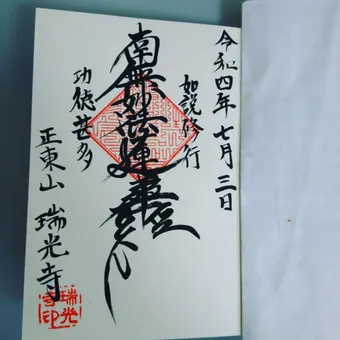 令和四年七月三日
如説修行
南無妙法蓮華経
功徳甚多
正東山 瑞光寺
瑞光
寺印